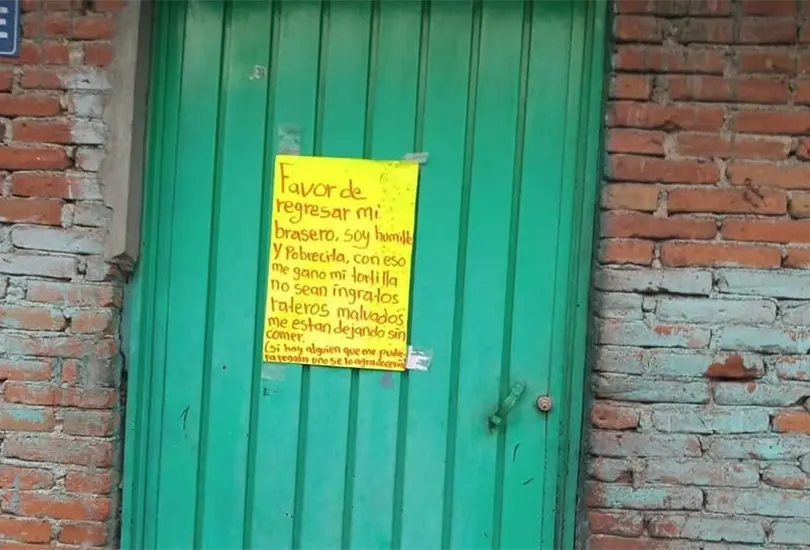 E
Favor de
regresar mi
brasero, soy humilde
y Pobrecita, con eso
me gano mi tortilla
no sean ingratos
rateros malvados
me estan dejando sin
comer.
(si hay alguien que me pudie-
ra regalar uno se lo agradeceria